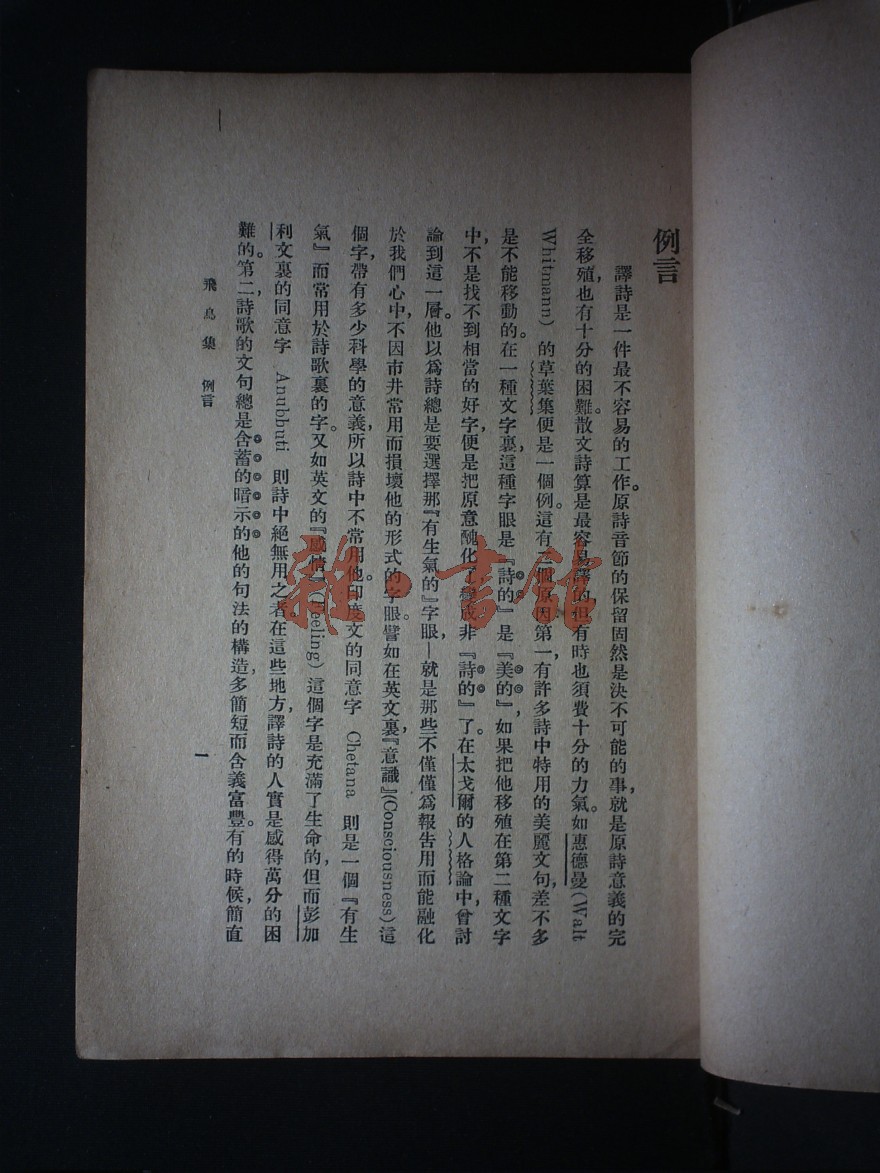 例言
譯詩是一件最不容易的工作。原詩音節的保留固然是決不可能的事，就是原詩意義的完
全移殖，也有十分的困難。散文詩算是最容易譯的，但有時也須費十分的力氣。如惠德曼（Walt
Whitmann）的草葉集便是一個例。這有二個原因：第一，有許多詩中特用的美麗文句，差不多
是不能移動的。在一種文字裏，這種字眼是『詩的』是『美的』，如果把他移殖在第二種文字
中，不是找不到相當的好字，便是把原意醜化了，變成非『詩的』了。在太戈爾的人格論中，曾討
論到這一層。他以爲詩總是要選擇那『有生氣的』字眼，—就是那些不僅僅爲報告用而能融化
於我們心中，不因市井常用而損壞他的形式的字眼。譬如在英文裏，『意識』（Consciousness）這
個字，帶有多少科學的意義，所以詩中不常用他。印度文的同意字 Chetana 則是一個『有生
氣』而常用於詩歌裏的字。又如英文的『感情』（Feeling）這個字是充滿了生命的，但而彭加
利文裏的同意字 Anubhuti 則詩中絕無用之者。在這些地方，譯詩的人實是感得萬分的困
難的。第二，詩歌的文句總是含蓄的暗示的。他的句法的構造，多簡短而含義富豐。有的時候，簡直
飛鳥集 例言
一
雜·書館